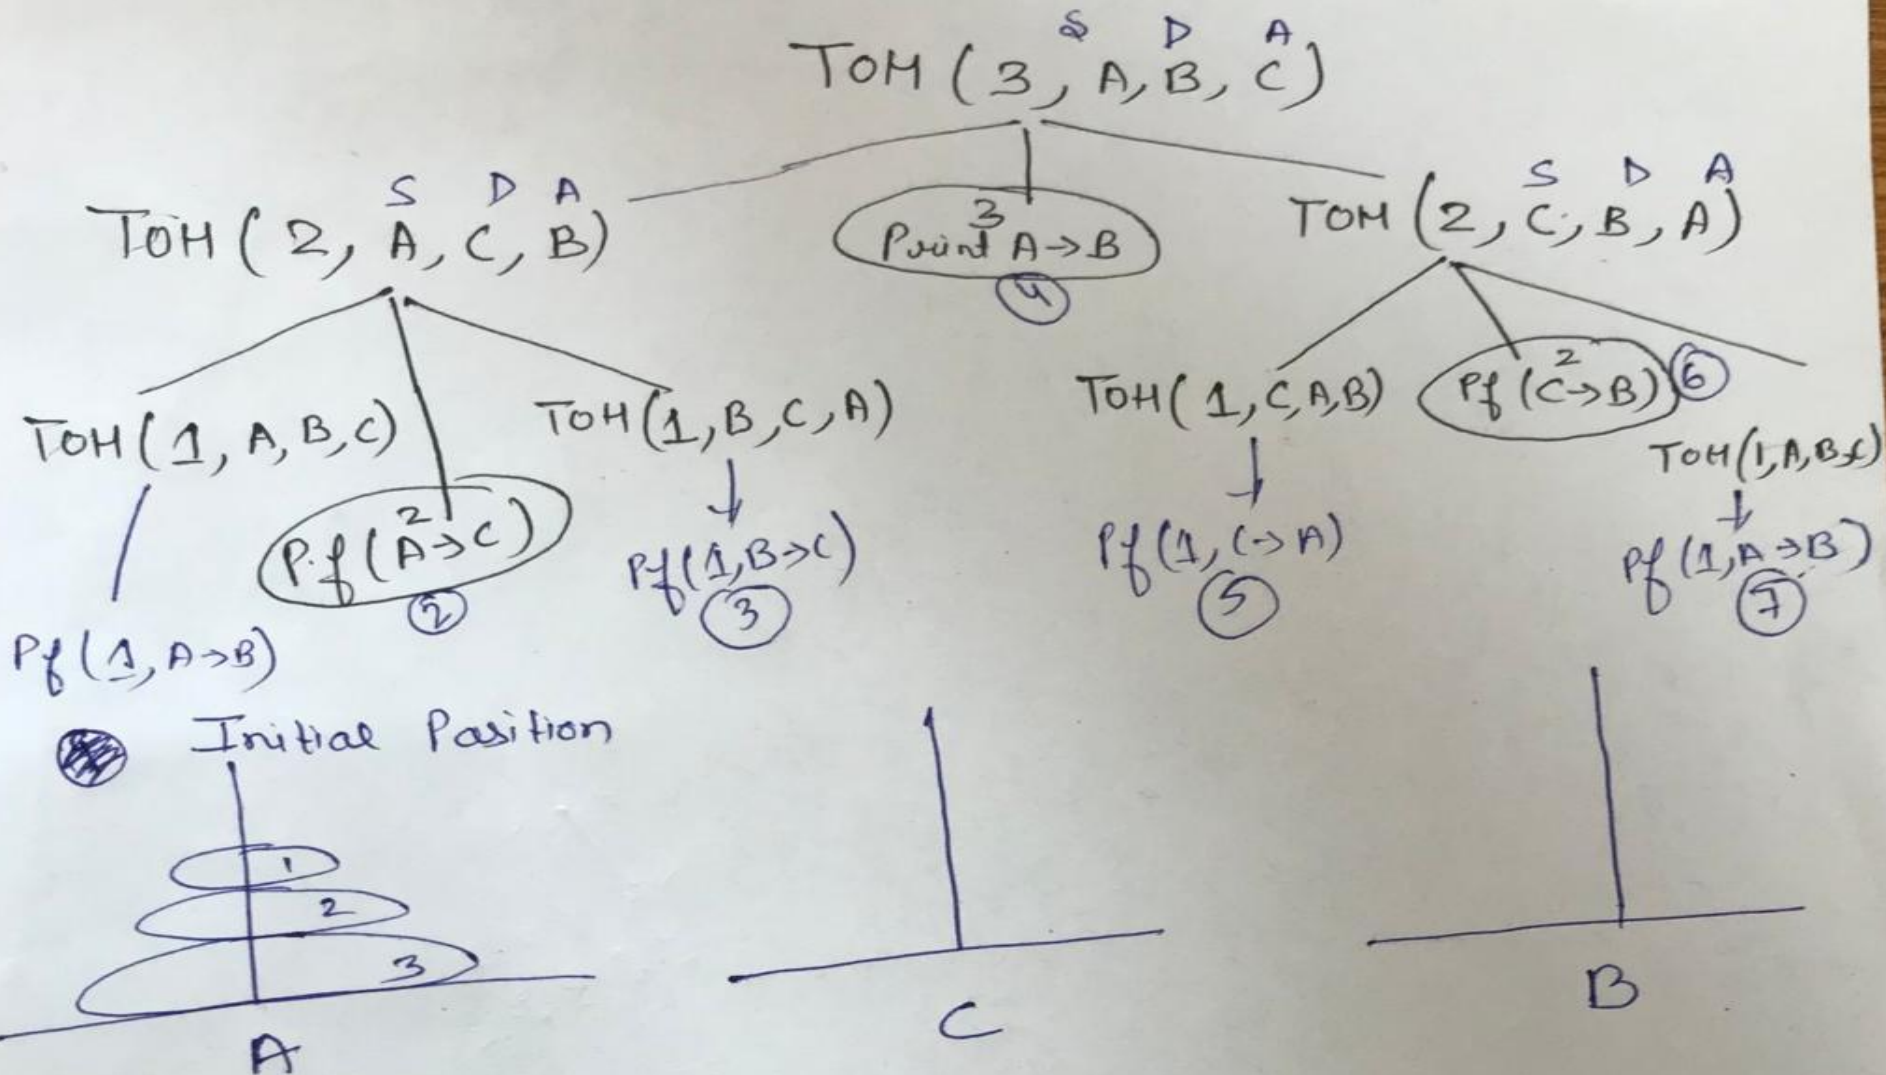 S D A
TOH (3, A, B, C)
S D A
TOH (2, A, C, B)
3
Print A→B
4
S D A
TOH (2, C, B, A)
TOH (1, A, B, C)
2
P.f (A→C)
2
TOH (1, B, C, A)
Pf(1, B→C)
3
TOH (1, C, A, B)
Pf (1, C→A)
5
2
Pf (C→B)
6
TOH (1, A, B, C)
Pf (1, A→B)
7
Pf (1, A→B)
Initial Position
1
2
3
A
C
B